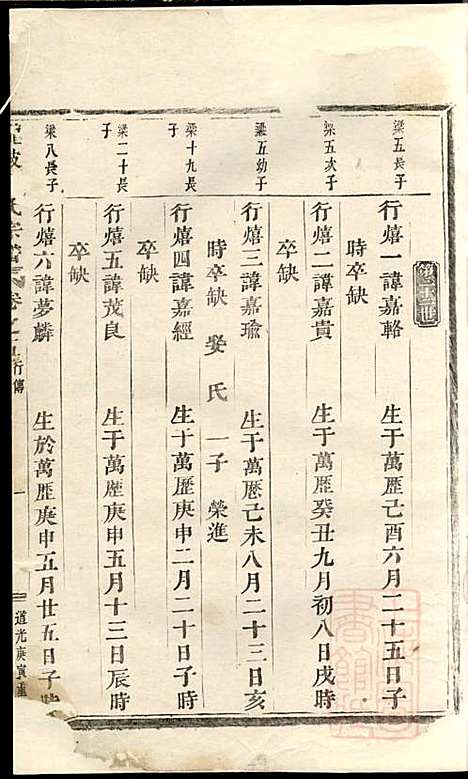 梁五長子
行熺一諱嘉輅
生于萬歷己酉六月二十五日子
時卒缺
梁五次子
行熺二諱嘉貴
生于萬歷癸丑九月初八日戌時
卒缺
梁五幼子
行熺三諱嘉瑜
生于萬歷己未八月二十三日亥
時卒缺
娶氏
一子
榮進
梁十九長
子
行熺四諱嘉經
生于萬歷庚申二月二十日子時
卒缺
梁二十長
子
行熺五諱茂良
生于萬歷庚申五月十三日辰時
卒缺
梁八長子
行熺六諱夢麟
生於萬歷庚申五月廿五日子時
氏宗譜
卷之
行傳
一
道光庚寅重